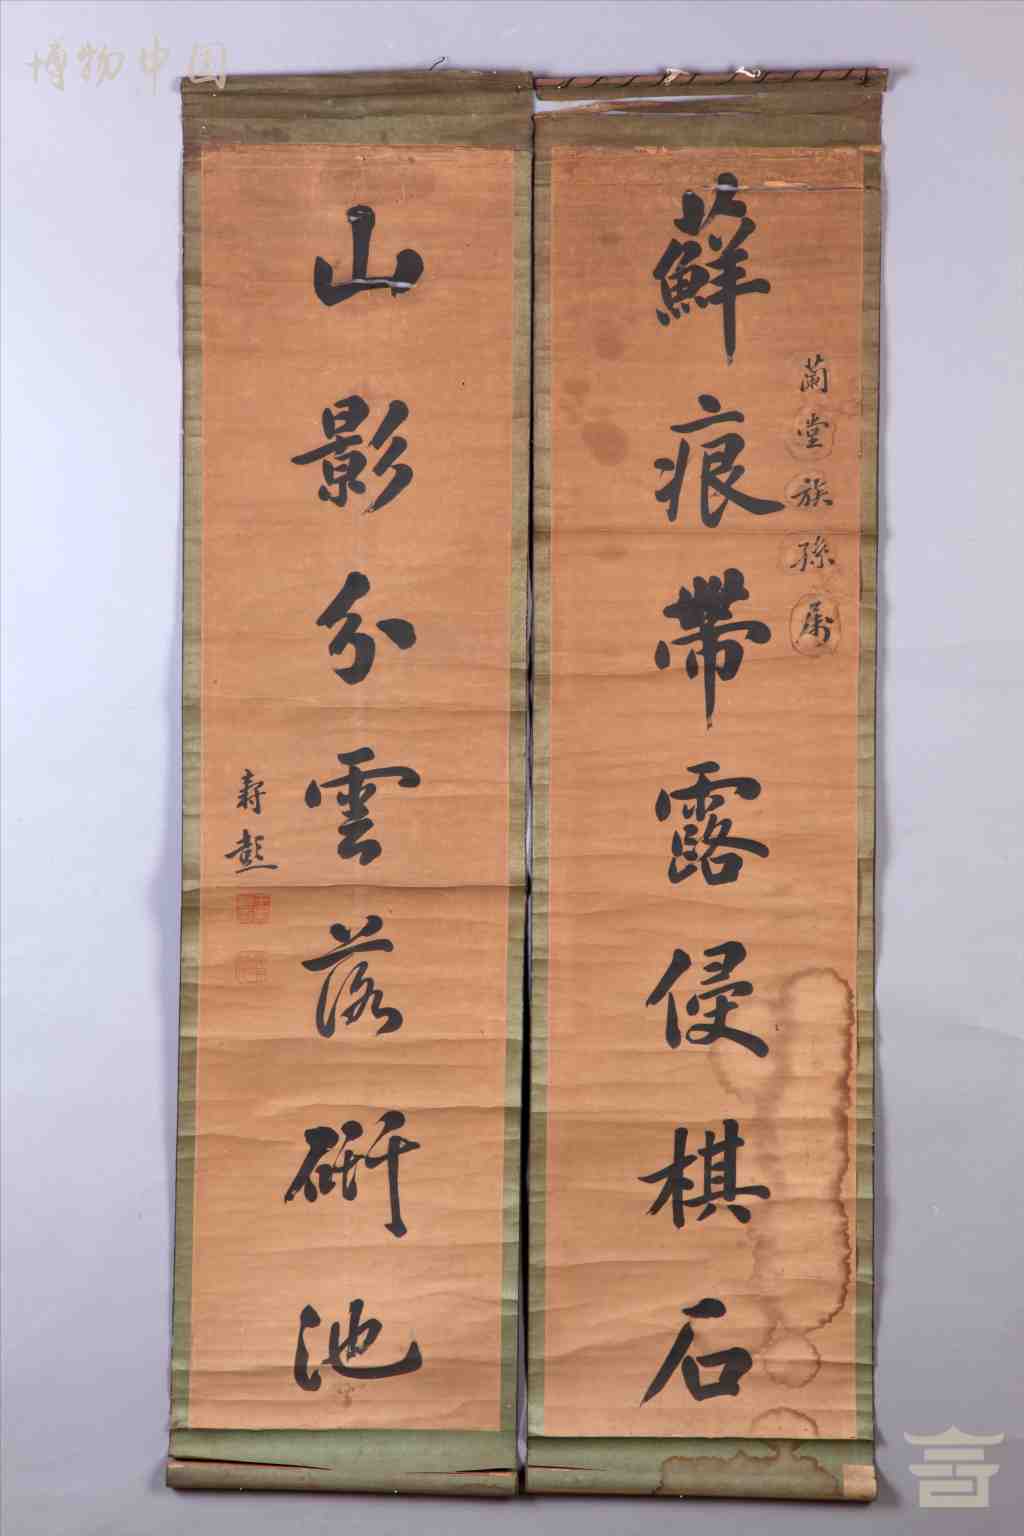 博物中国
蘭堂族孫属
蘚痕帶露侵棋石
山影分雲落研池
壽彭